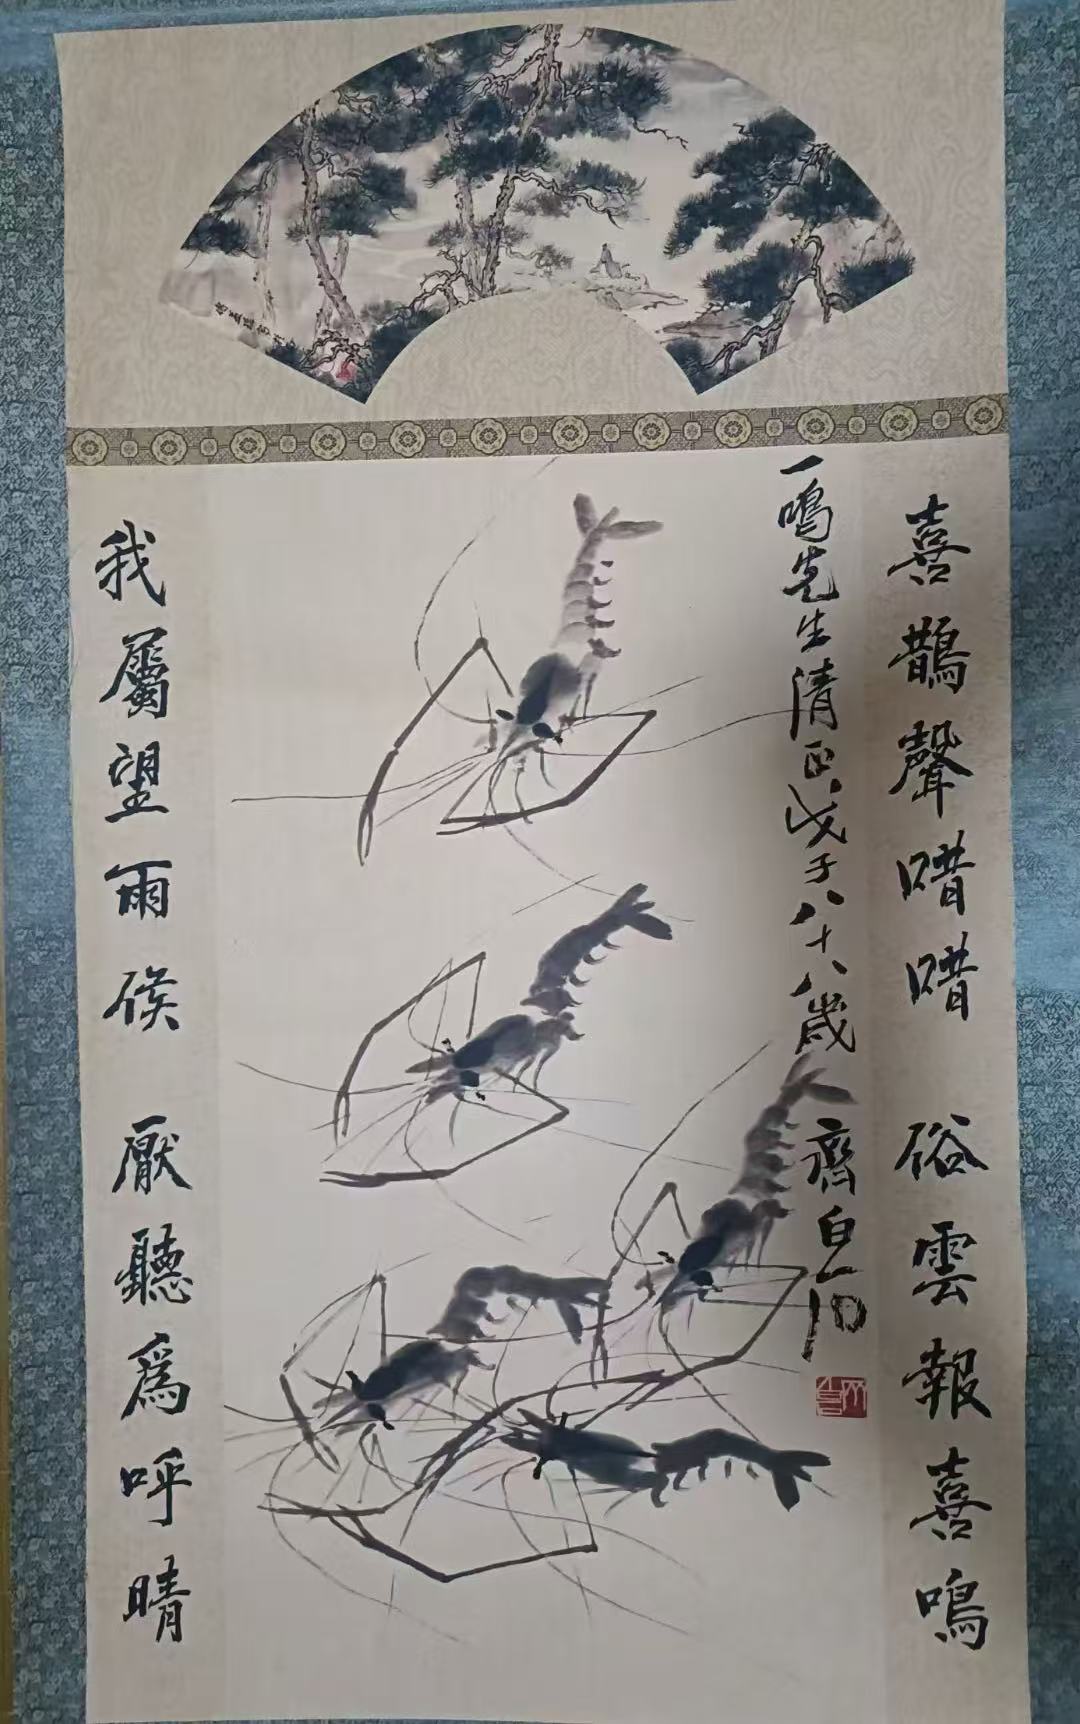 喜鵲聲唶唶 俗雲報喜鳴
一鳴先生清正戊子八十八歲 齊白石
我屬望雨候 厭聽爲呼晴